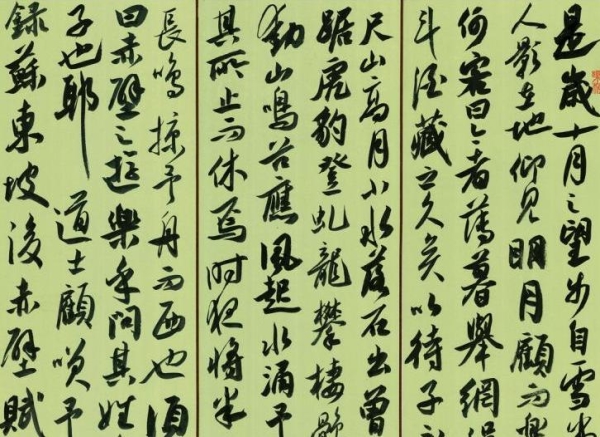 是歲十月之望步自雪
人影在地仰見明月顧而樂
何客曰今者薄暮舉網得
斗酒藏之久矣以待子不
尺山高月小水落石出曾
踞虎豹登虬龍攀棲鶻
動山鳴谷應風起水涌予
其所止而休焉時夜將半
長鳴掠予舟而西也須
曰赤壁之遊樂乎問其姓
子也耶 道士顧笑予
錄蘇東坡後赤壁賦